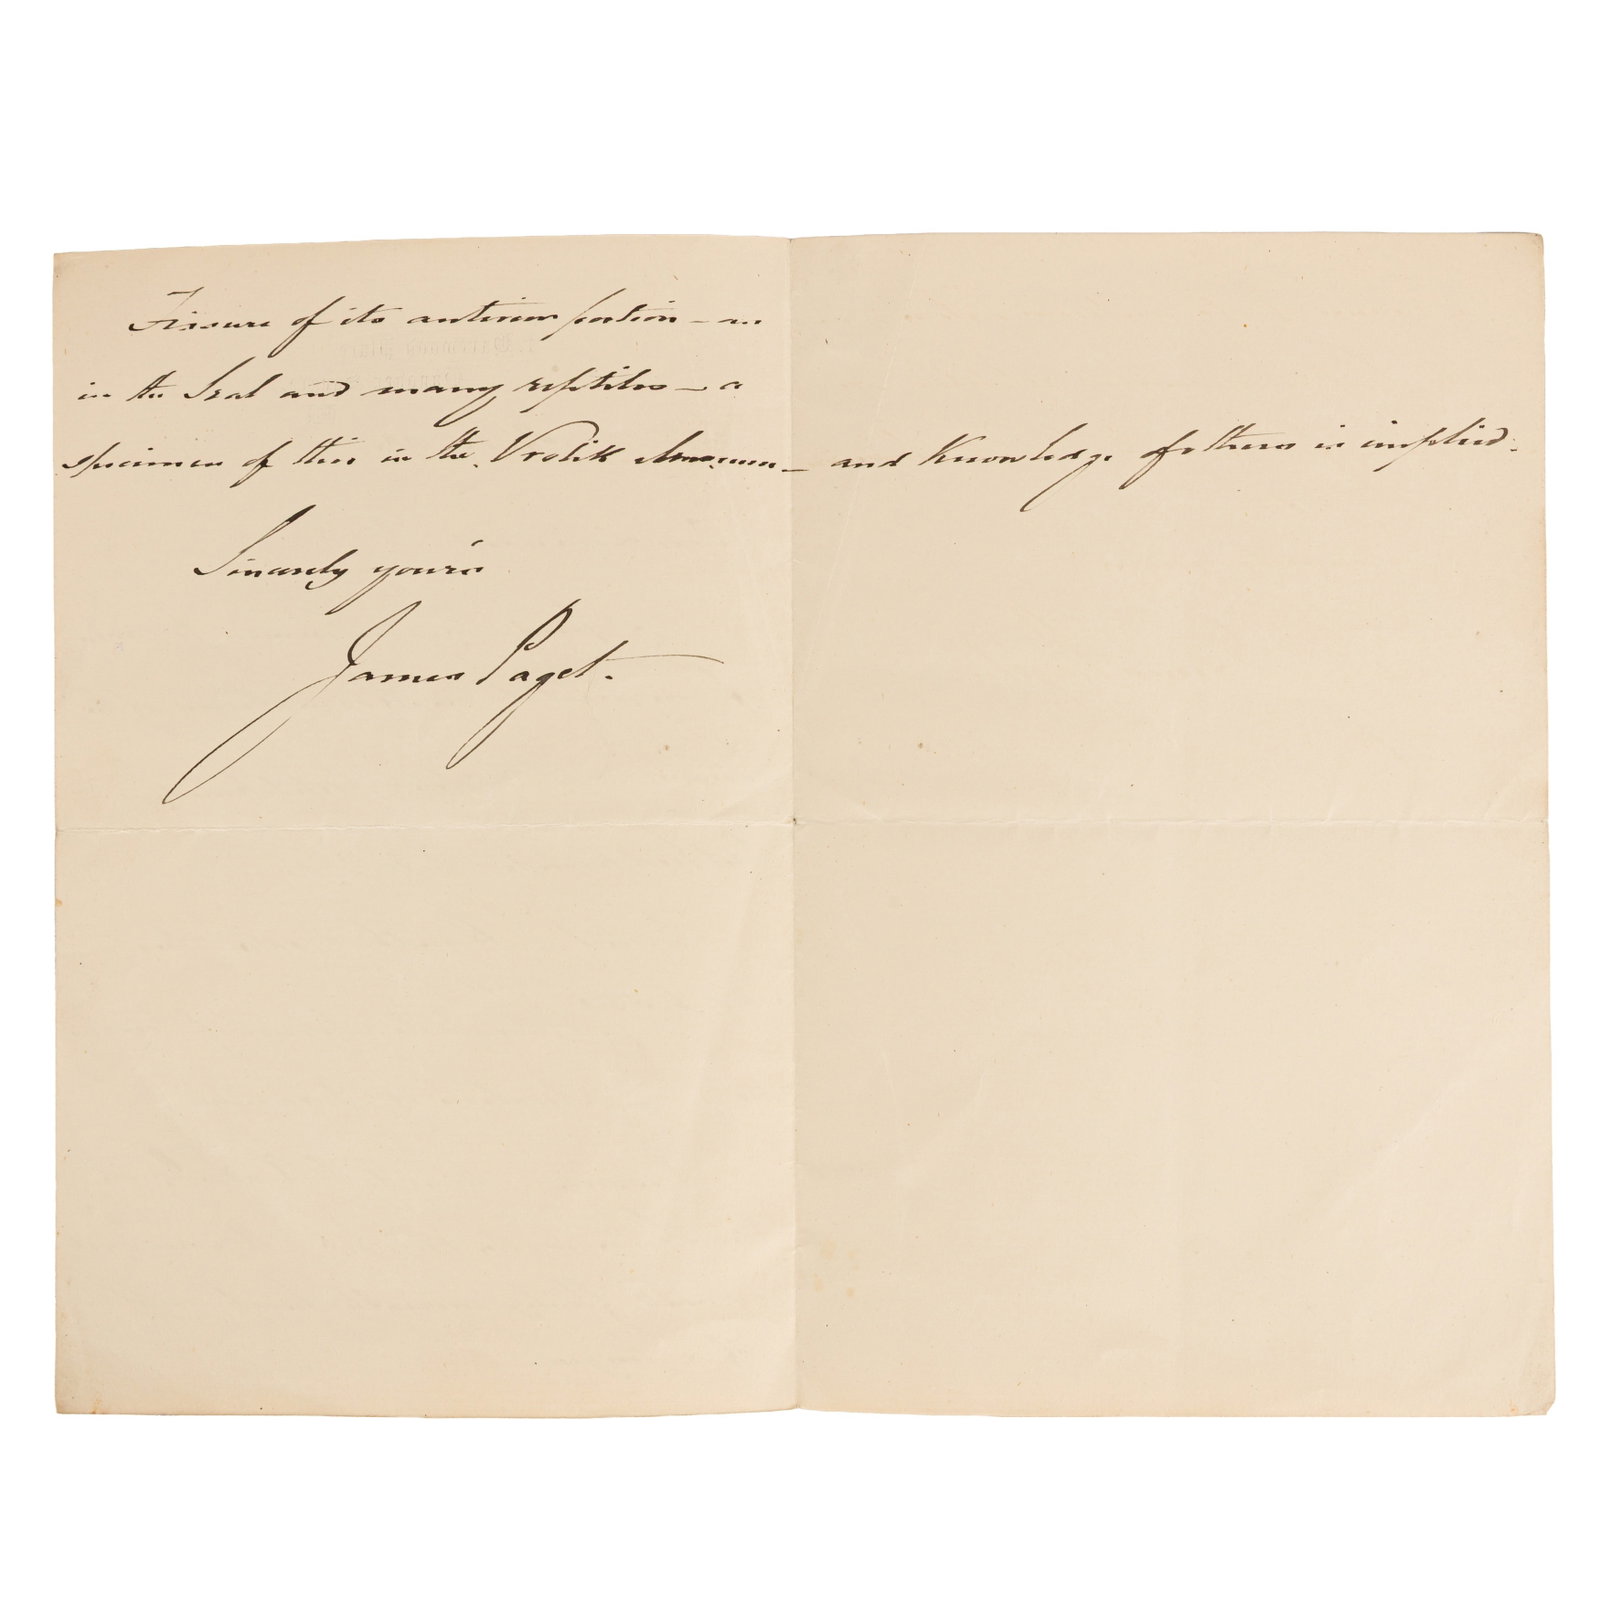 Fissure of its anterior portion – as
in the Seal and many reptiles – a
specimen of this in the Vrolik Museum – and Knowledge of others is implied.
Sincerely your's
James Paget.